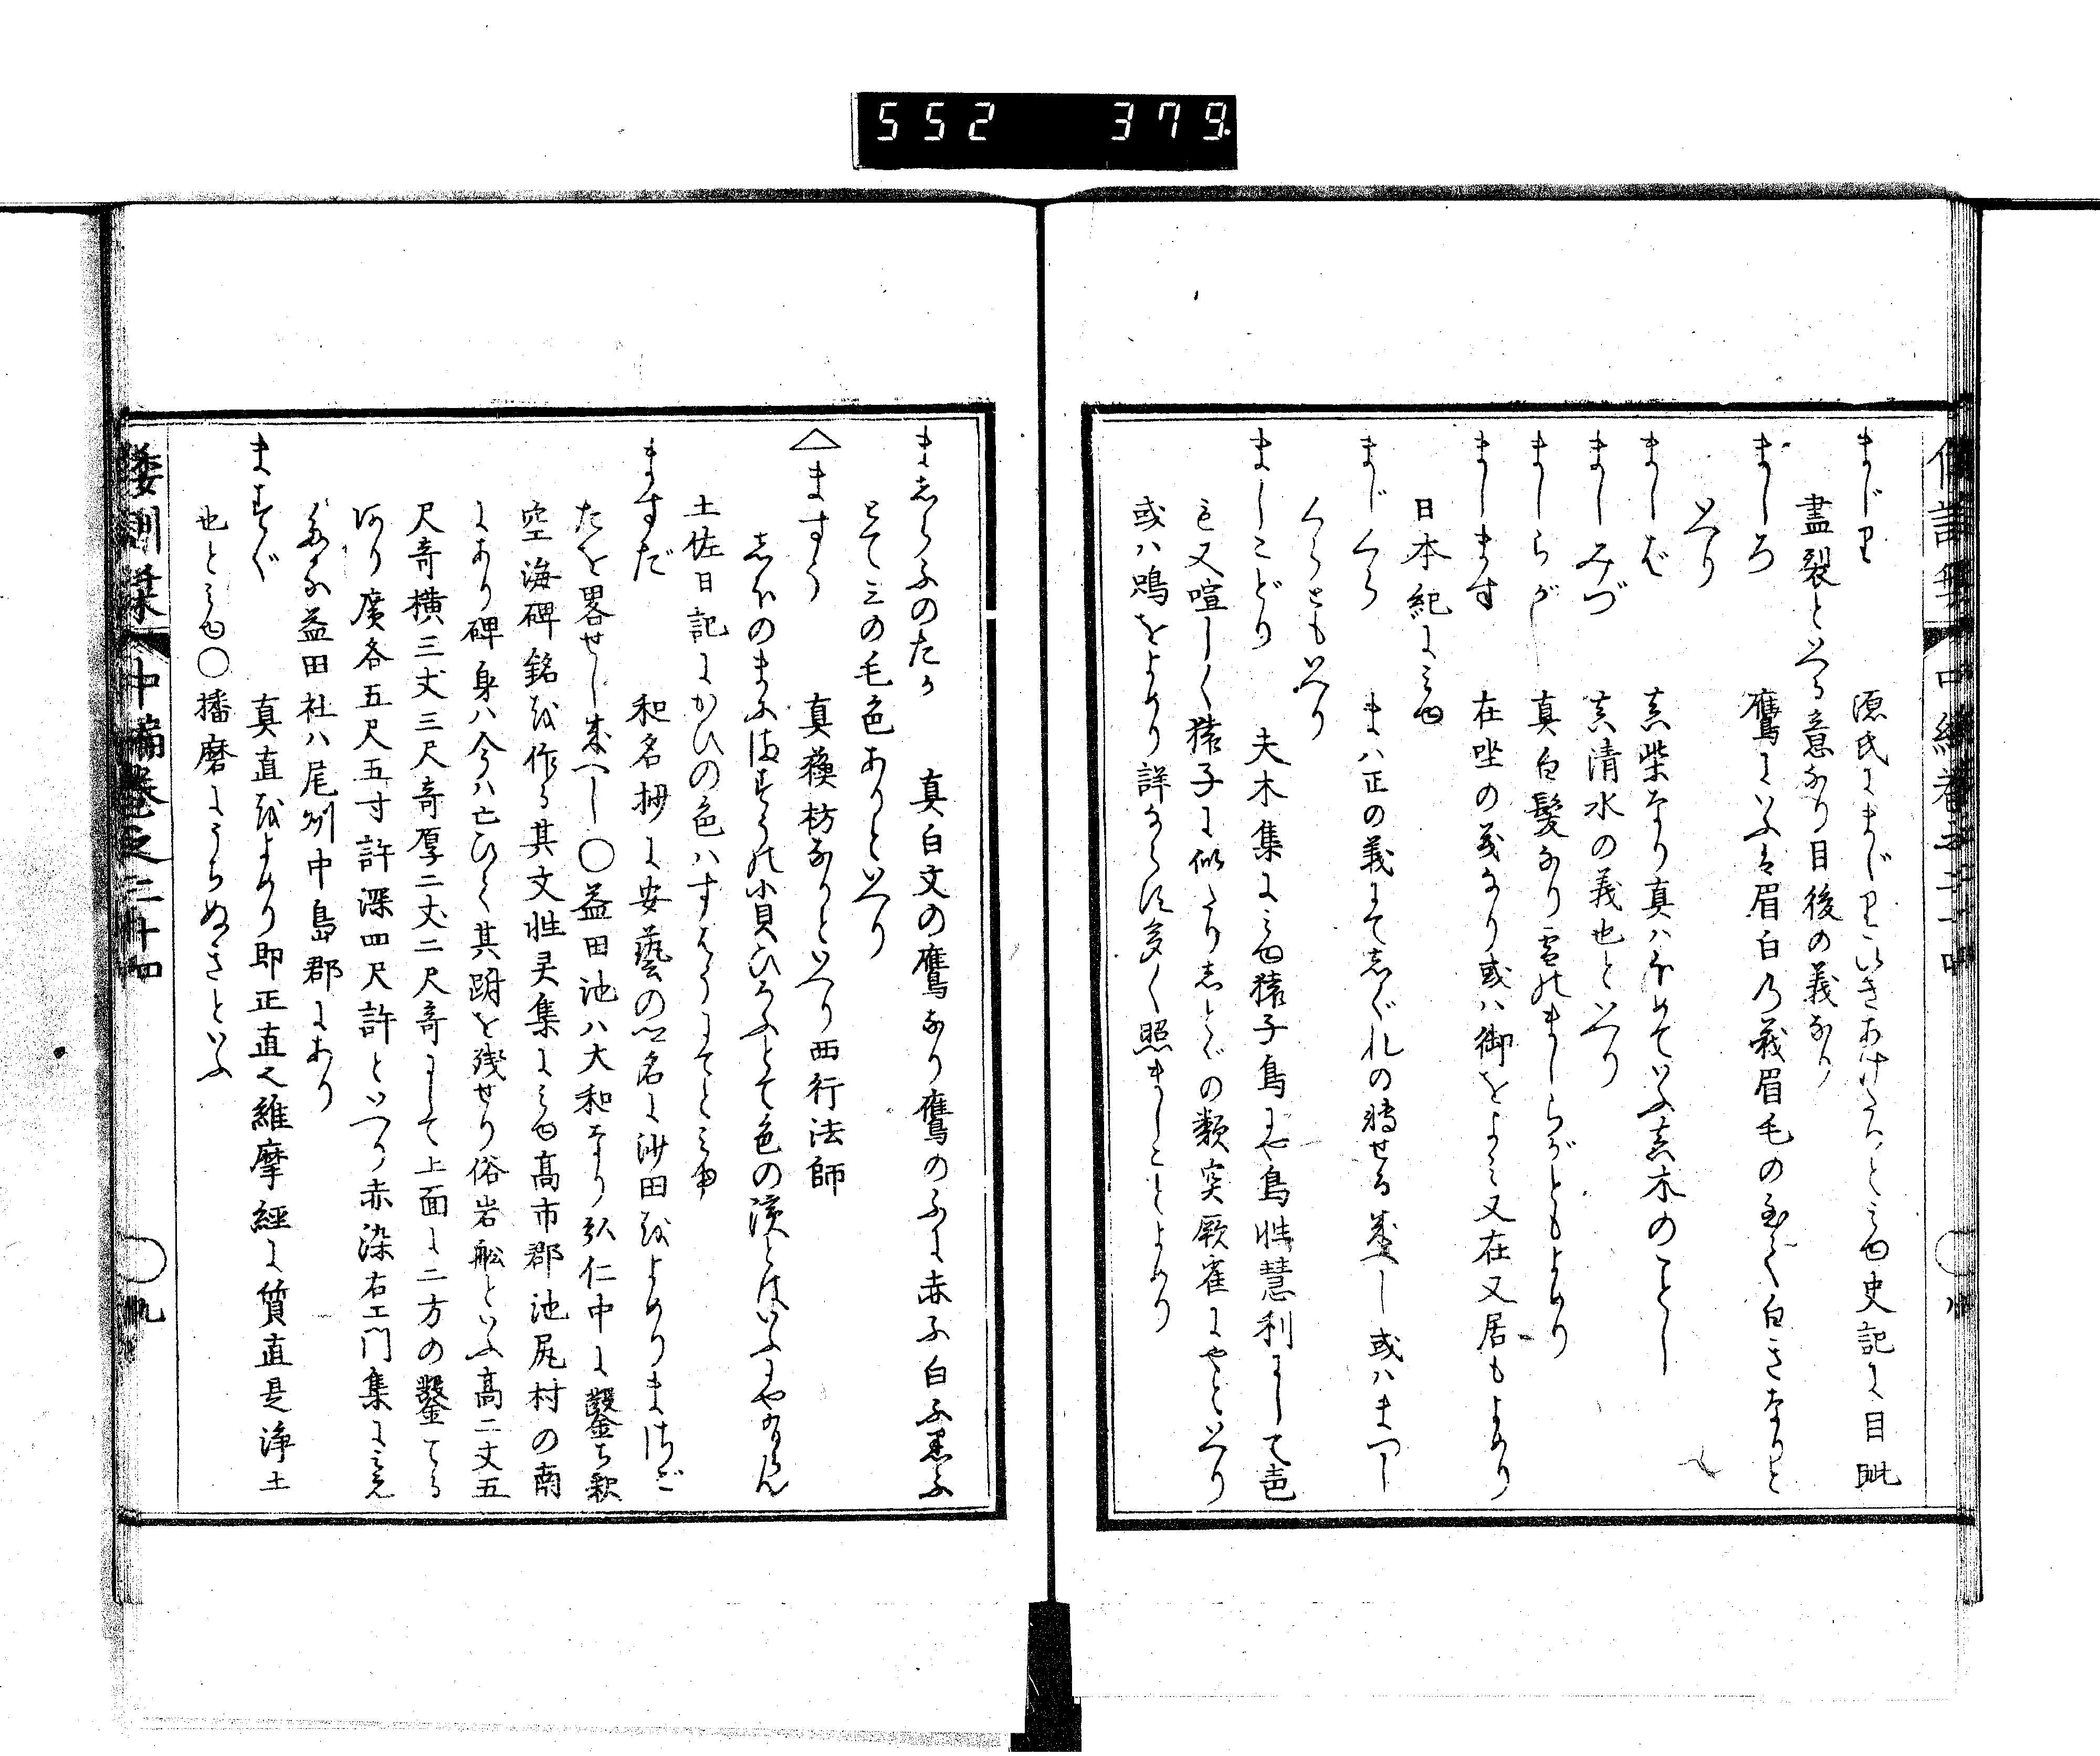 552 379
まじり　源氏にまじりいきあけたりとみゆ史記に目眦
盡裂といへる意なり目後の義なり
ましろ　鷹にいふは眉白の義眉毛の至て白きなりと
いへり
ましば　真柴なり真ハほめていふ真木のことし
ましみづ　真清水の義也といへり
ましらが　真白髪なり雪のましらがともよめり
まします　在坐の義なり或ハ御をよみ又在又居もよめり
日本紀にみゆ
まじくら　まハ正の義にてしぐれの轉せる成べし或ハまつし
くらともいへり
ましこどり　夫木集にみゆ猿子鳥にや鳥性慧利にして声
も又喧しく猿子に似たりしとゞの類突厥雀にやといへり
或ハ鳴をよめり詳ならず多く照ましことよめり
倭訓栞　中編巻之二十四　八
ましらふのたか　真白文の鷹なり鷹のふに赤ふ白ふ黒ふ
とて三の毛色ありといへり
△ますう　真蘓枋なりといへり西行法師
しほのまふにますうの小貝ひろふとて色の濱とはいふにやあるらん
土佐日記にかひの色ハすはうにてとみゆ
ますだ　和名抄に安藝の郷名に沙田をよめりまさご
たを畧せし成べし〇益田池ハ大和なり弘仁中に鑿ち歟
空海碑銘を作る其文性灵集にみゆ高市郡池尻村の南
にあり碑身ハ今ハ亡ひて其趺を残せり俗岩舩といふ高二丈五
尺奇横三丈三尺奇厚二丈二尺奇にして上面に二方の鑿てる
あり廣各五尺五寸許深四尺許といへり赤染右エ門集にみえ
たる益田社ハ尾州中島郡にあり
ますぐ　真直をよめり即正直也維摩經に質直是浄土
也とみゆ〇播磨にうちぬきといふ
倭訓栞　中編巻之二十四　九